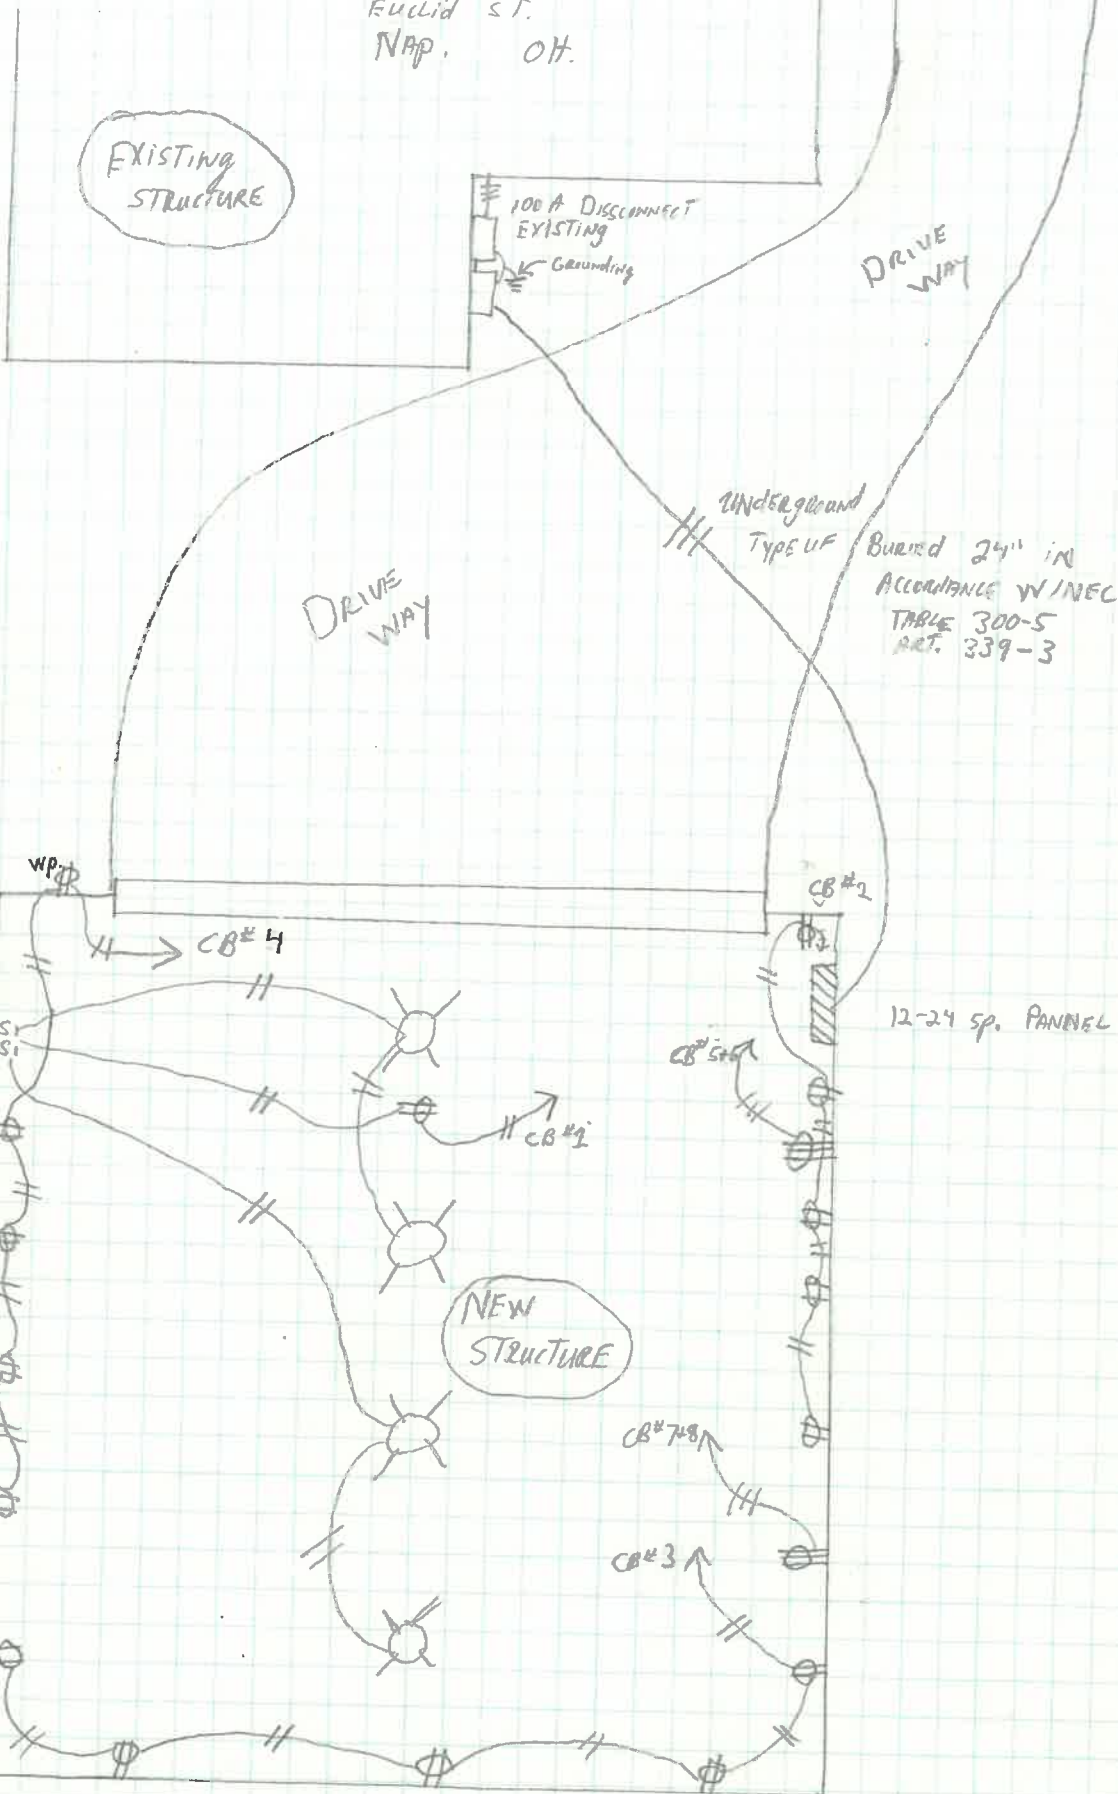 Euclid ST.
NAP. OH.
EXISTING
STRUCTURE
100 A DISSCONNECT
EXISTING
GROUNDING
DRIVE
WAY
UNDERground
TYPE UF
BURIED 24" IN
ACCORDANCE W/NEC
TABLE 300-5
ART. 339-3
DRIVE
WAY
WP.
CB#2
CB# 4
12-24 sp. PANNEL
S1
S1
CB#5+6
CB#1
NEW
STRUCTURE
CB#7+8
CB#3